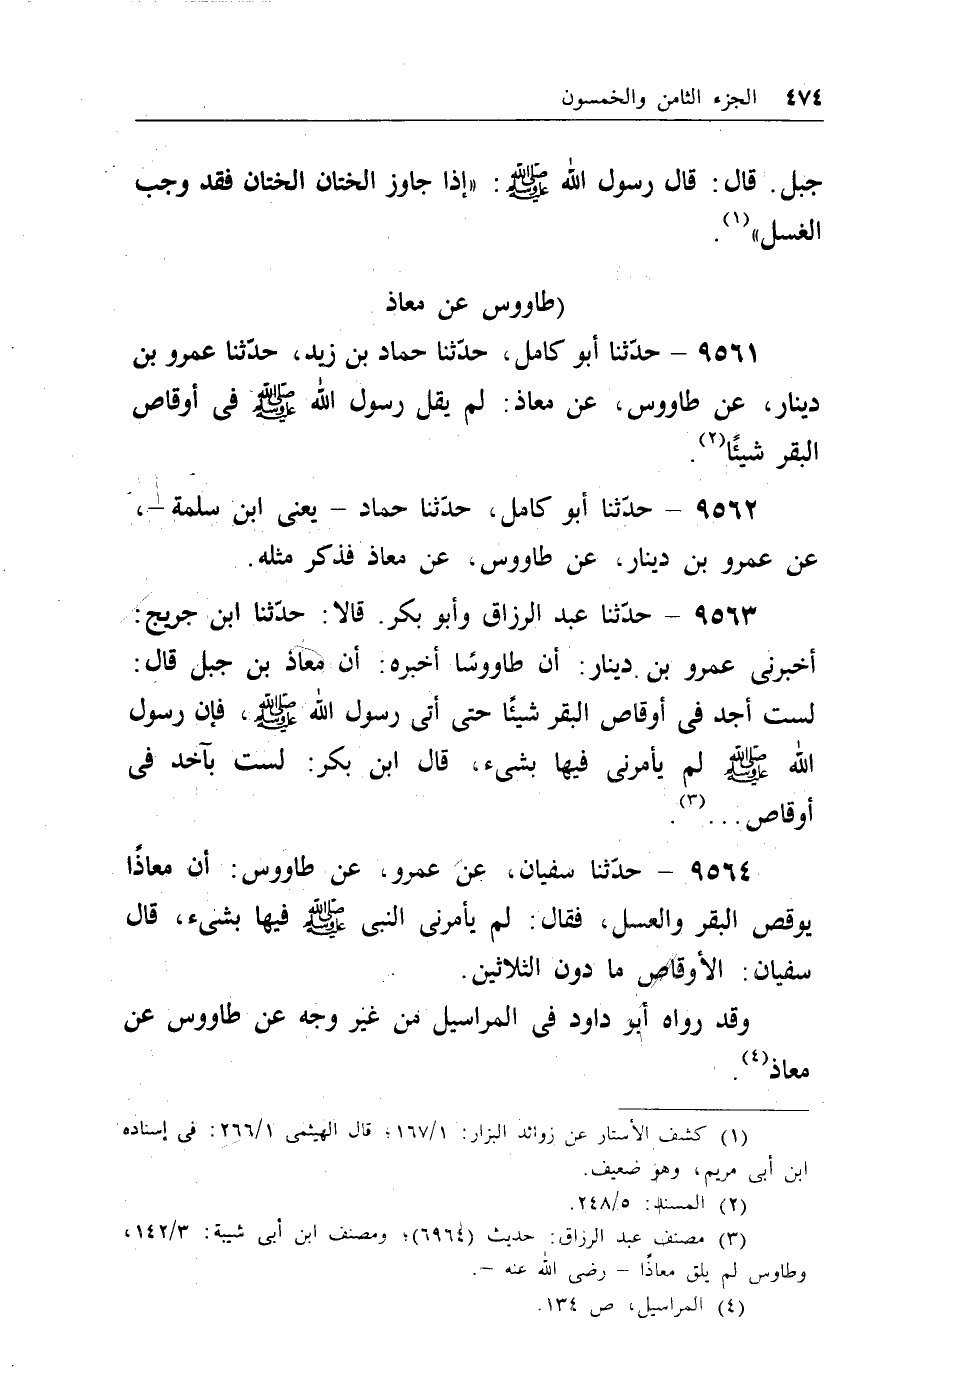 ٤٧٤ الجزء الثامن والخمسون
جبل. قال: قال رسول الله ﷺ: «إذا جاوز الختان الختان فقد وجب
الغسل»(١).
(طاووس عن معاذ
٩٥٦١ – حدّثنا أبو كامل، حدّثنا حماد بن زيد، حدّثنا عمرو بن
دينار، عن طاووس، عن معاذ: لم يقل رسول الله ﷺ فى أوقاص
البقر شيئًا(٢).
٩٥٦٢ – حدّثنا أبو كامل، حدّثنا حماد – يعنى ابن سلمة –،
عن عمرو بن دينار، عن طاووس، عن معاذ فذكر مثله.
٩٥٦٣ – حدّثنا عبد الرزاق وأبو بكر. قالا: حدّثنا ابن جريج:
أخبرنى عمرو بن دينار: أن طاووسًا أخبره: أن معاذ بن جبل قال:
لست أجد فى أوقاص البقر شيئًا حتى أتى رسول الله ﷺ، فإن رسول
الله ﷺ لم يأمرنى فيها بشىء، قال ابن بكر: لست بآخد فى
أوقاص...(٣).
٩٥٦٤ – حدّثنا سفيان، عن عمرو، عن طاووس: أن معاذًا
يوقص البقر والعسل، فقال: لم يأمرنى النبى ﷺ فيها بشىء، قال
سفيان: الأوقاص ما دون الثلاثين.
وقد رواه أبو داود فى المراسيل من غير وجه عن طاووس عن
معاذ(٤).
(١) كشف الأستار عن زوائد البزار: ١٦٧/١؛ قال الهيثمى ٢٦٦/١: فى إسناده
ابن أبى مريم، وهو ضعيف.
(٢) المسند: ٢٤٨/٥.
(٣) مصنف عبد الرزاق: حديث (٦٩٦٤)؛ ومصنف ابن أبى شيبة: ١٤٢/٣،
وطاوس لم يلق معاذًا – رضى الله عنه –.
(٤) المراسيل، ص ١٣٤.